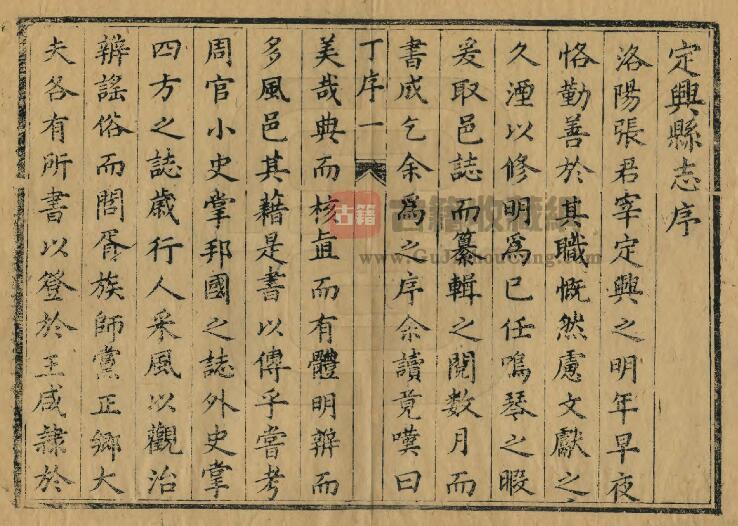 定興縣志序
洛陽張君宰定興之明年早夜
恪勤善於其職慨然慮文獻之
久湮以修明爲已任鳴琴之暇
爰取邑誌而纂輯之閱数月而
書成乞余爲之序余讀竟嘆曰
丁序一
美哉典而核直而有體明辨而
多風邑其藉是書以傳乎嘗考
周官小史掌邦國之誌外史掌
四方之誌歲行人采風以觀治
辨謠俗而閭胥族師黨正鄉大
夫各有所書以登於王咸隷於
古籍
古籍收藏網
www.GuJiShouCang.com